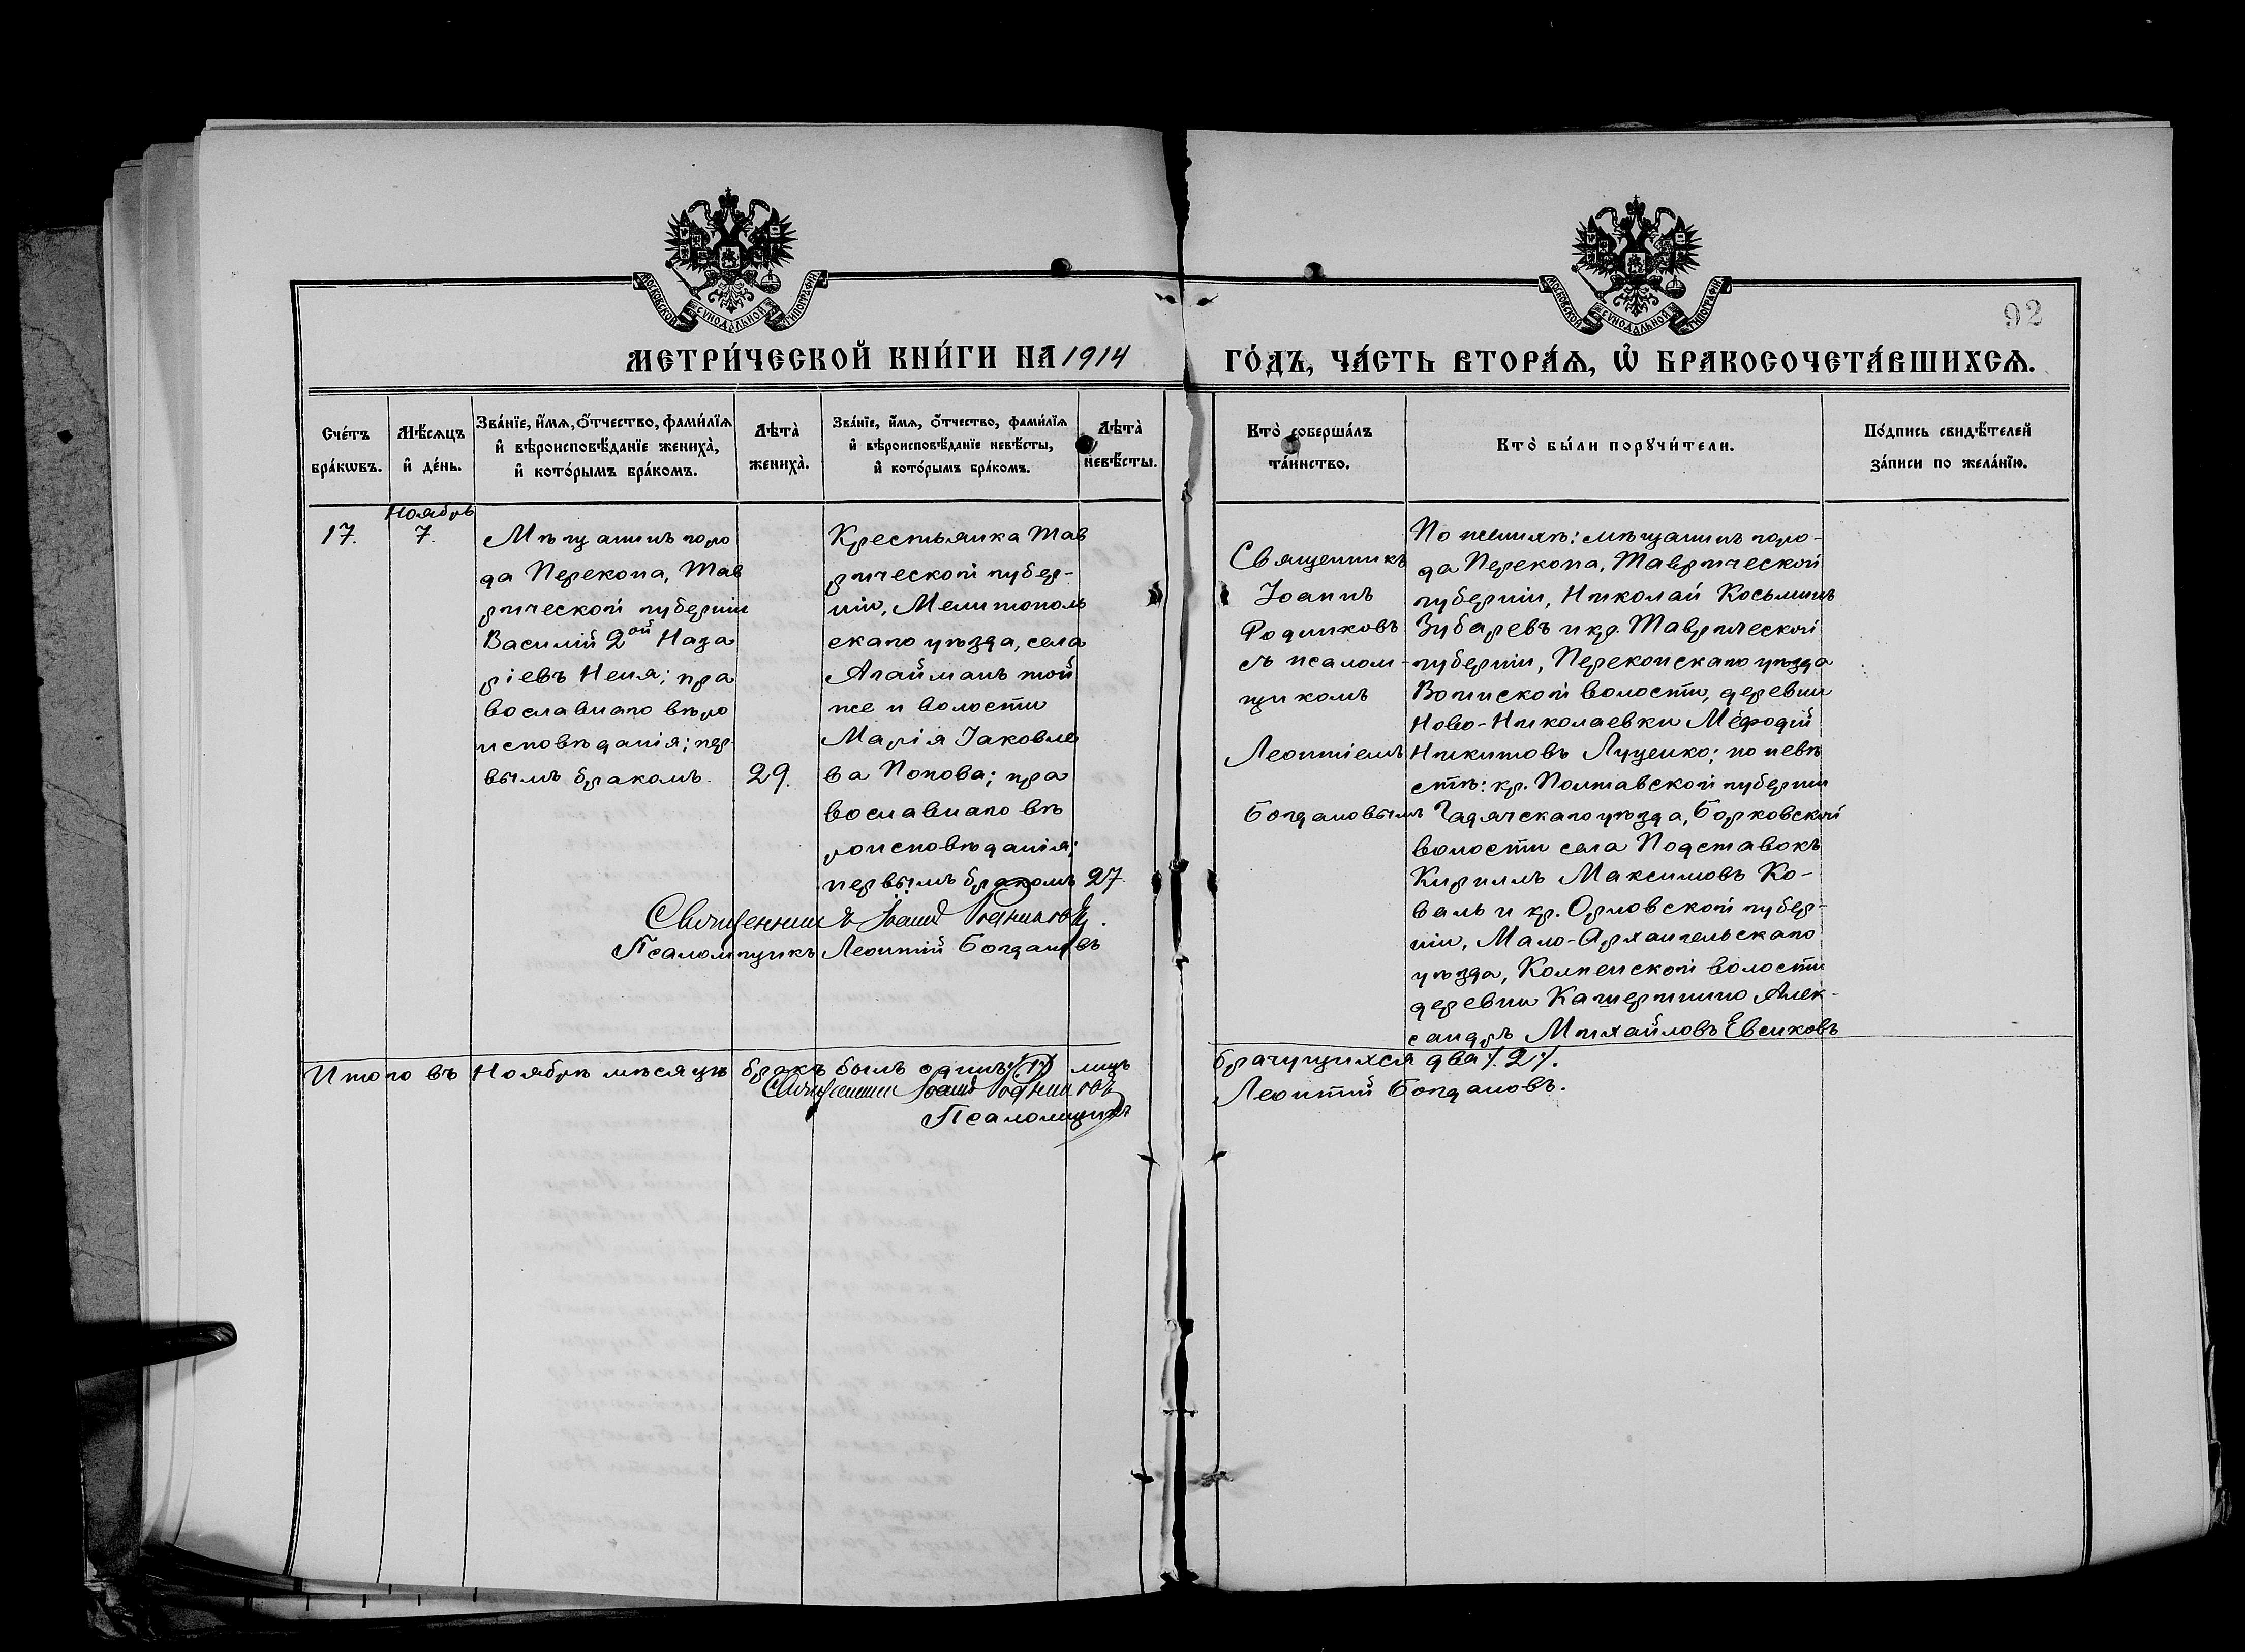 МОСКОВСКОЙ СУНОДАЛЬНОЙ ТИПОГРАФІИ
МОСКОВСКОЙ СУНОДАЛЬНОЙ ТИПОГРАФІИ
92
МЕТРИ́ЧЕСКОЙ КНИ́ГИ НА 1914
ГО́ДЪ, ЧА́СТЬ ВТОРА́Ѧ, Ѡ҆ БРАКОСОЧЕТА́ВШИХСѦ.
Сче́тъ
бра́кѡвъ.
Мѣ́сяцъ
и҆ де́нь.
Зва́нїе, и҆́мѧ, ѻ҆́тчество, фами́лїѧ
и҆ вѣроисповѣ́данїе жениха̀,
и҆ кото́рымъ бра́комъ.
Лѣта̀
жениха̀.
Зва́нїе, и҆́мѧ, ѻ҆́тчество, фами́лїѧ
и҆ вѣроисповѣ́данїе невѣ́сты,
и҆ кото́рымъ бра́комъ.
Лѣта̀
невѣ́сты.
Кто̀ соверша́лъ
та́инство.
Кто̀ бы́ли порꙋчи́тели.
По́дпись свидѣ́телей
за́писи по жела́нїю.
17.
Ноябрь
7.
Мѣщанинъ горо
да Перекопа, Тав
рической губерніи
Василій 2ой Наза
ріевъ Неня; пра
вославнаго вѣро
исповѣданія; пер
вымъ бракомъ.
29.
Крестьянка Тав
рической губер-
ніи, Мелитополь
скаго уѣзда, села
Агайманъ той
же и волости
Марія Іаковле
ва Попова; пра
вославнаго вѣ
роисповѣданія;
первымъ бракомъ
27
Священникъ Іоаннъ Родниковъ.
Псаломщикъ Леонтій Богдановъ
Священникъ
Іоаннъ
Родниковъ
съ псалом-
щикомъ
Леонтіемъ
Богдановымъ
По женихѣ: мѣщанинъ горо-
да Перекопа, Таврической
губерніи, Николай Косьминъ
Зубаревъ и кр. Таврической
губерніи, Перекопскаго уѣзда
Воинской волости, деревни
Ново-Николаевки Меѳодій
Никитовъ Луценко; по невѣ
стѣ: кр. Полтавской губерніи
Гадячскаго уѣзда, Борковской
волости села Подставокъ
Кириллъ Максимовъ Ко-
валь и кр. Орловской губер-
ніи, Мало-Архангельскаго
уѣзда, Колпенской волости
деревни Алек-
сандръ Михайловъ Евсиковъ
Итого въ Ноябрѣ мѣсяцѣ бракъ былъ одинъ (1) лицъ
брачущихся два /.2/.
Священникъ Іоаннъ Родниковъ
Псаломщикъ
Леонтій Богдановъ.